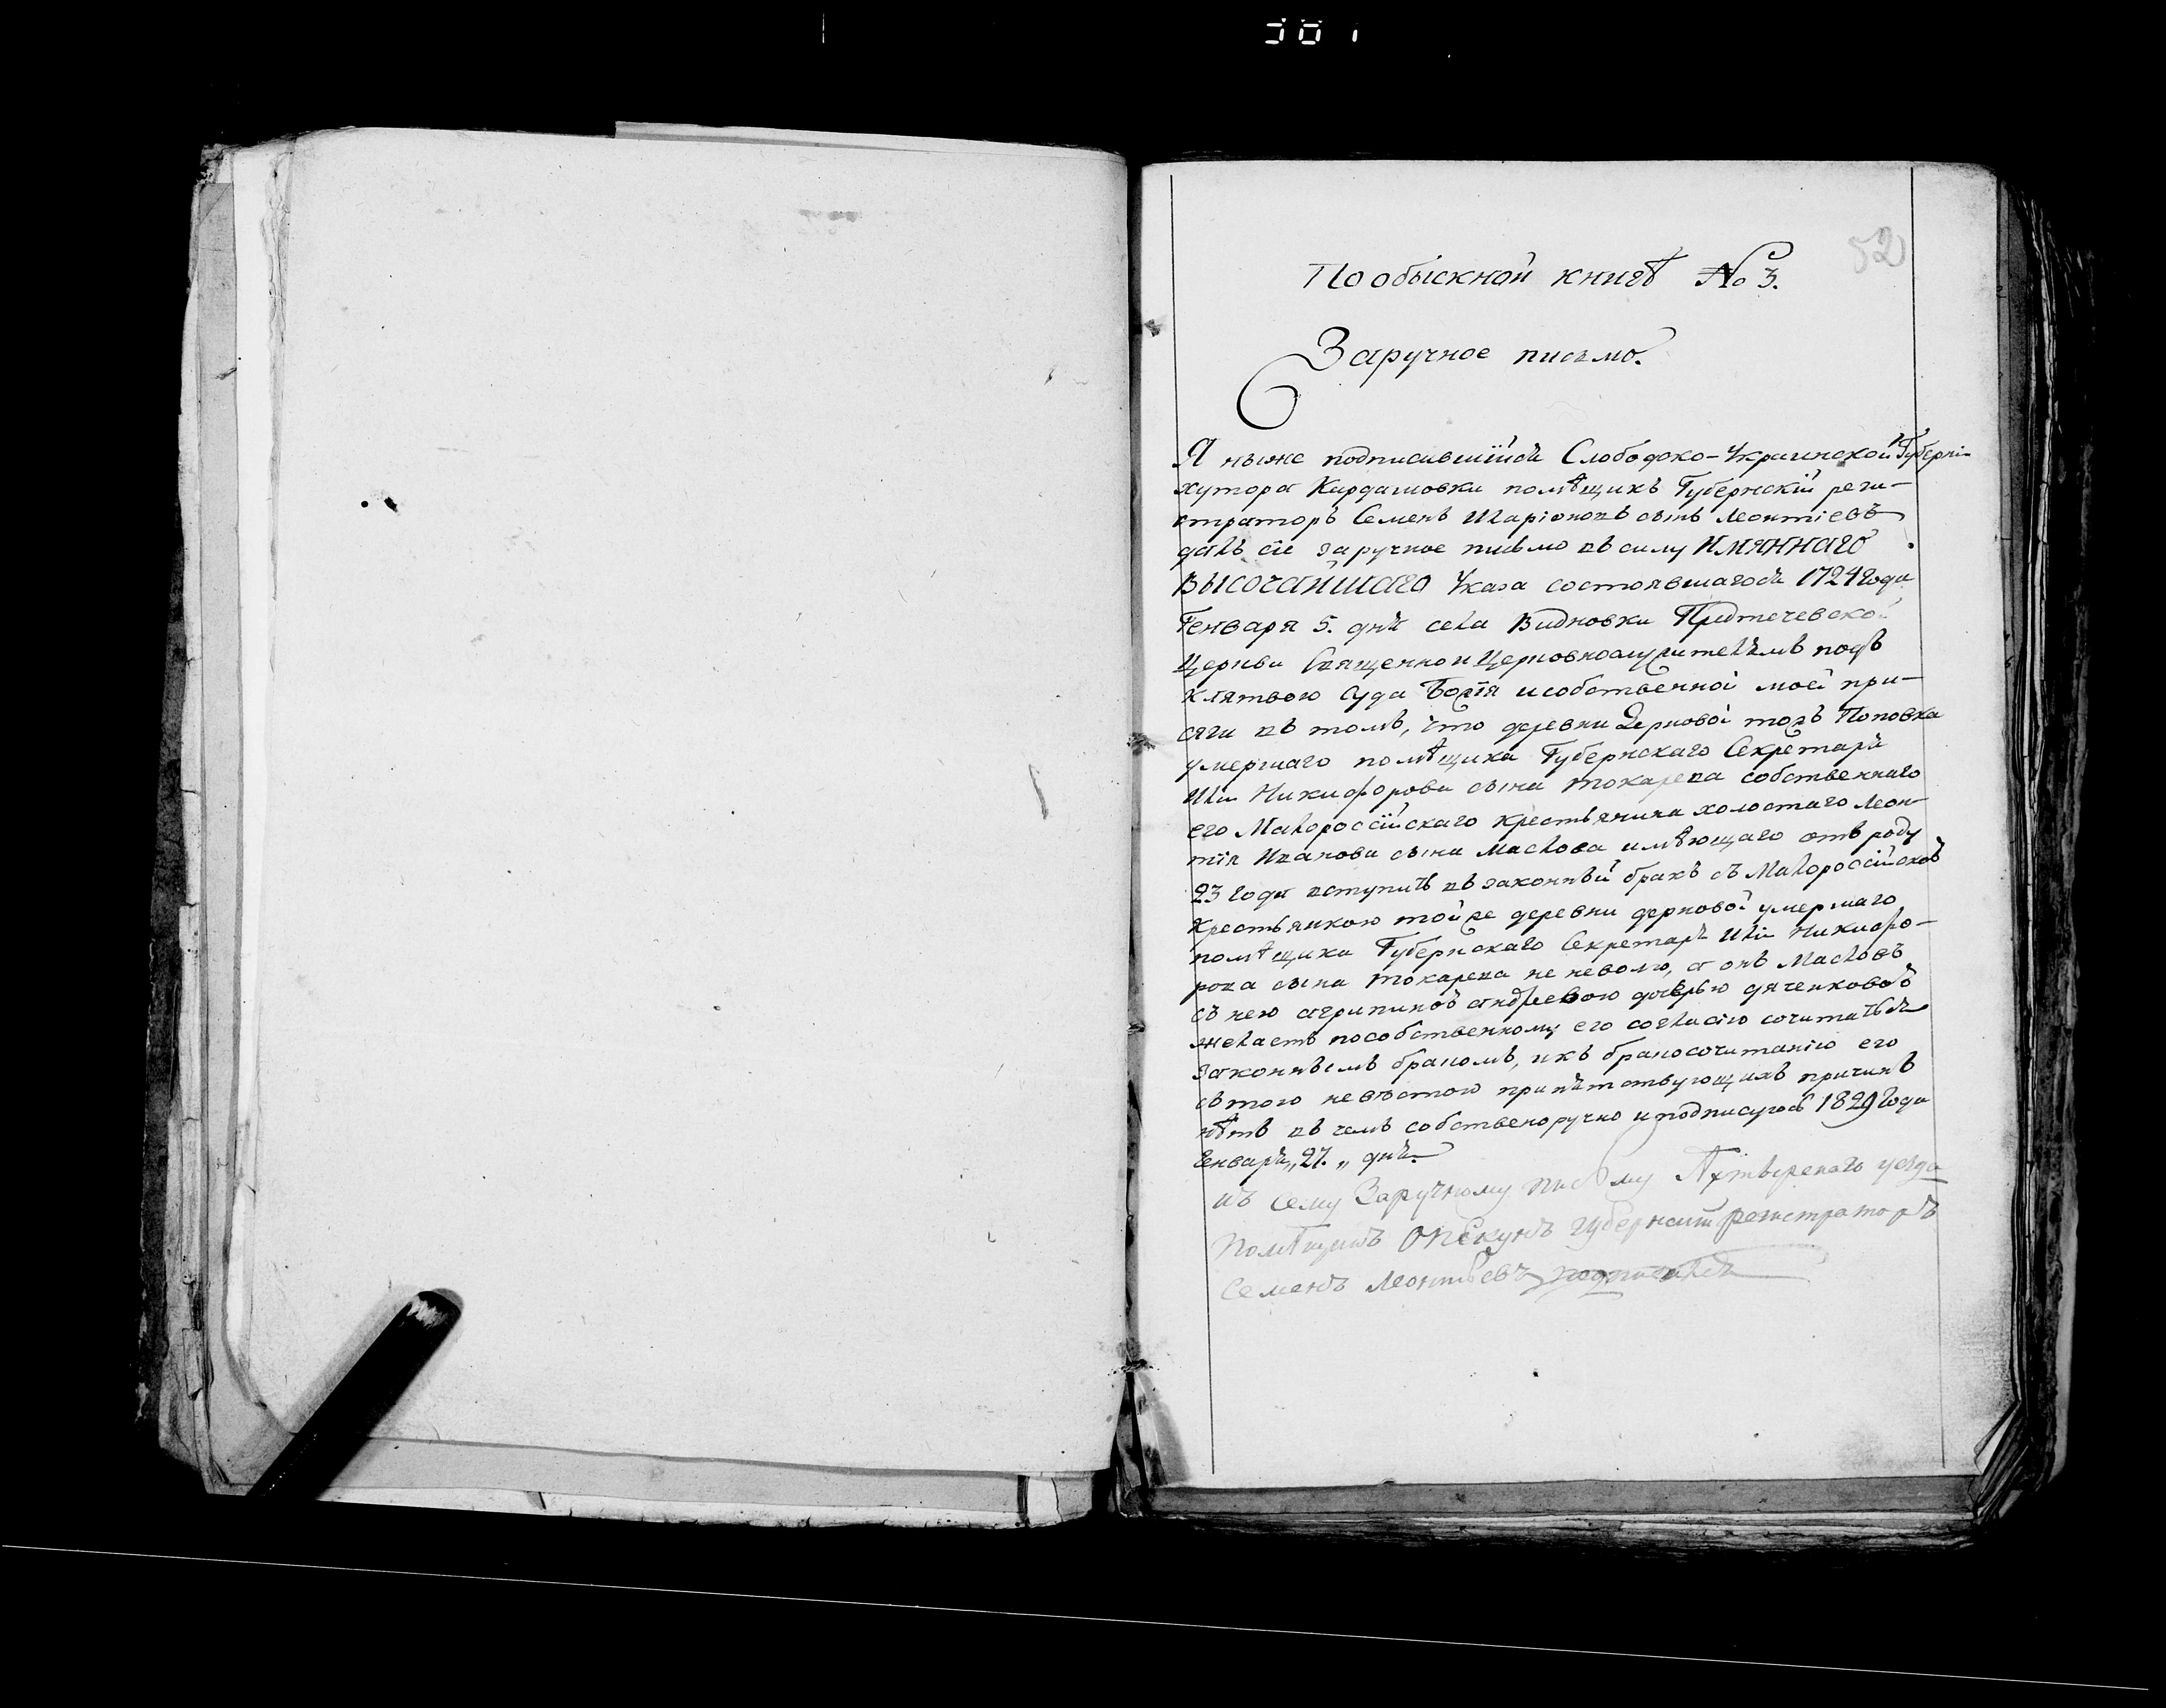 52
По обыскной книгѣ № 3.
Заручное писмо.
Я ниже подписавшійся Слободско-Украинской Губерніи
хутора Кардашовки помѣщикъ Губернскій реги-
страторъ Семенъ Иларіоновъ сынъ Леонтіевъ
далъ сіе заручное письмо въ силу ИМЯННАГО
ВЫСОЧАЙШАГО Указа состоявшагося 1724 года
Генваря 5. дня села Видновки Предтечевской
Церкви Священно и Церковнослужителямъ подъ
клятвою Суда Божія и собственной моей при-
сяги въ томъ, что деревни Дерновой тожъ Поповка
умершаго помѣщика Губернскаго Секретаря
Ильи Никифорова сына Токарева собственнаго
его Малороссійскаго крестьянина холостаго Леон-
тія Иванова сына Маслова имѣющаго отъ роду
23 года вступить въ законный бракъ съ Малороссійскою
крестьянкою той же деревни Дерновой умершаго
помѣщика Губернскаго Секретаря Ильи Никифо-
рова сына Токарева не неволю, а онъ Масловъ
съ нею Агрипиною Андреевою дочерью Дяченковою
желаетъ по собственному его согласію сочитаться
законнымъ бракомъ, и къ бракосочитанію его
съ тою невѣстою препятствующихъ причинъ
нѣтъ въ чемъ собственоручно и подписуюсь 1829 года
Генваря „27.„ дня.
къ сему Заручному письму Ахтырскаго уезда
Помѣщикъ Опекунъ губернский регистраторъ
Семенъ Леонтьевъ подписался